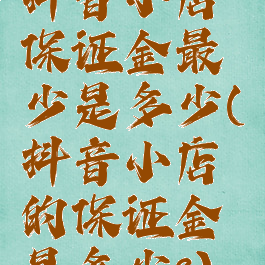 抖音小店
保证金最
少是多少(
抖音小店
的保证金
是多少?)